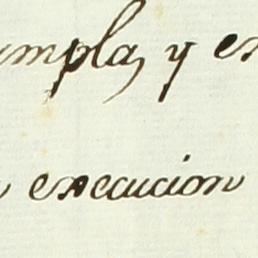 umpla, y en
execucion